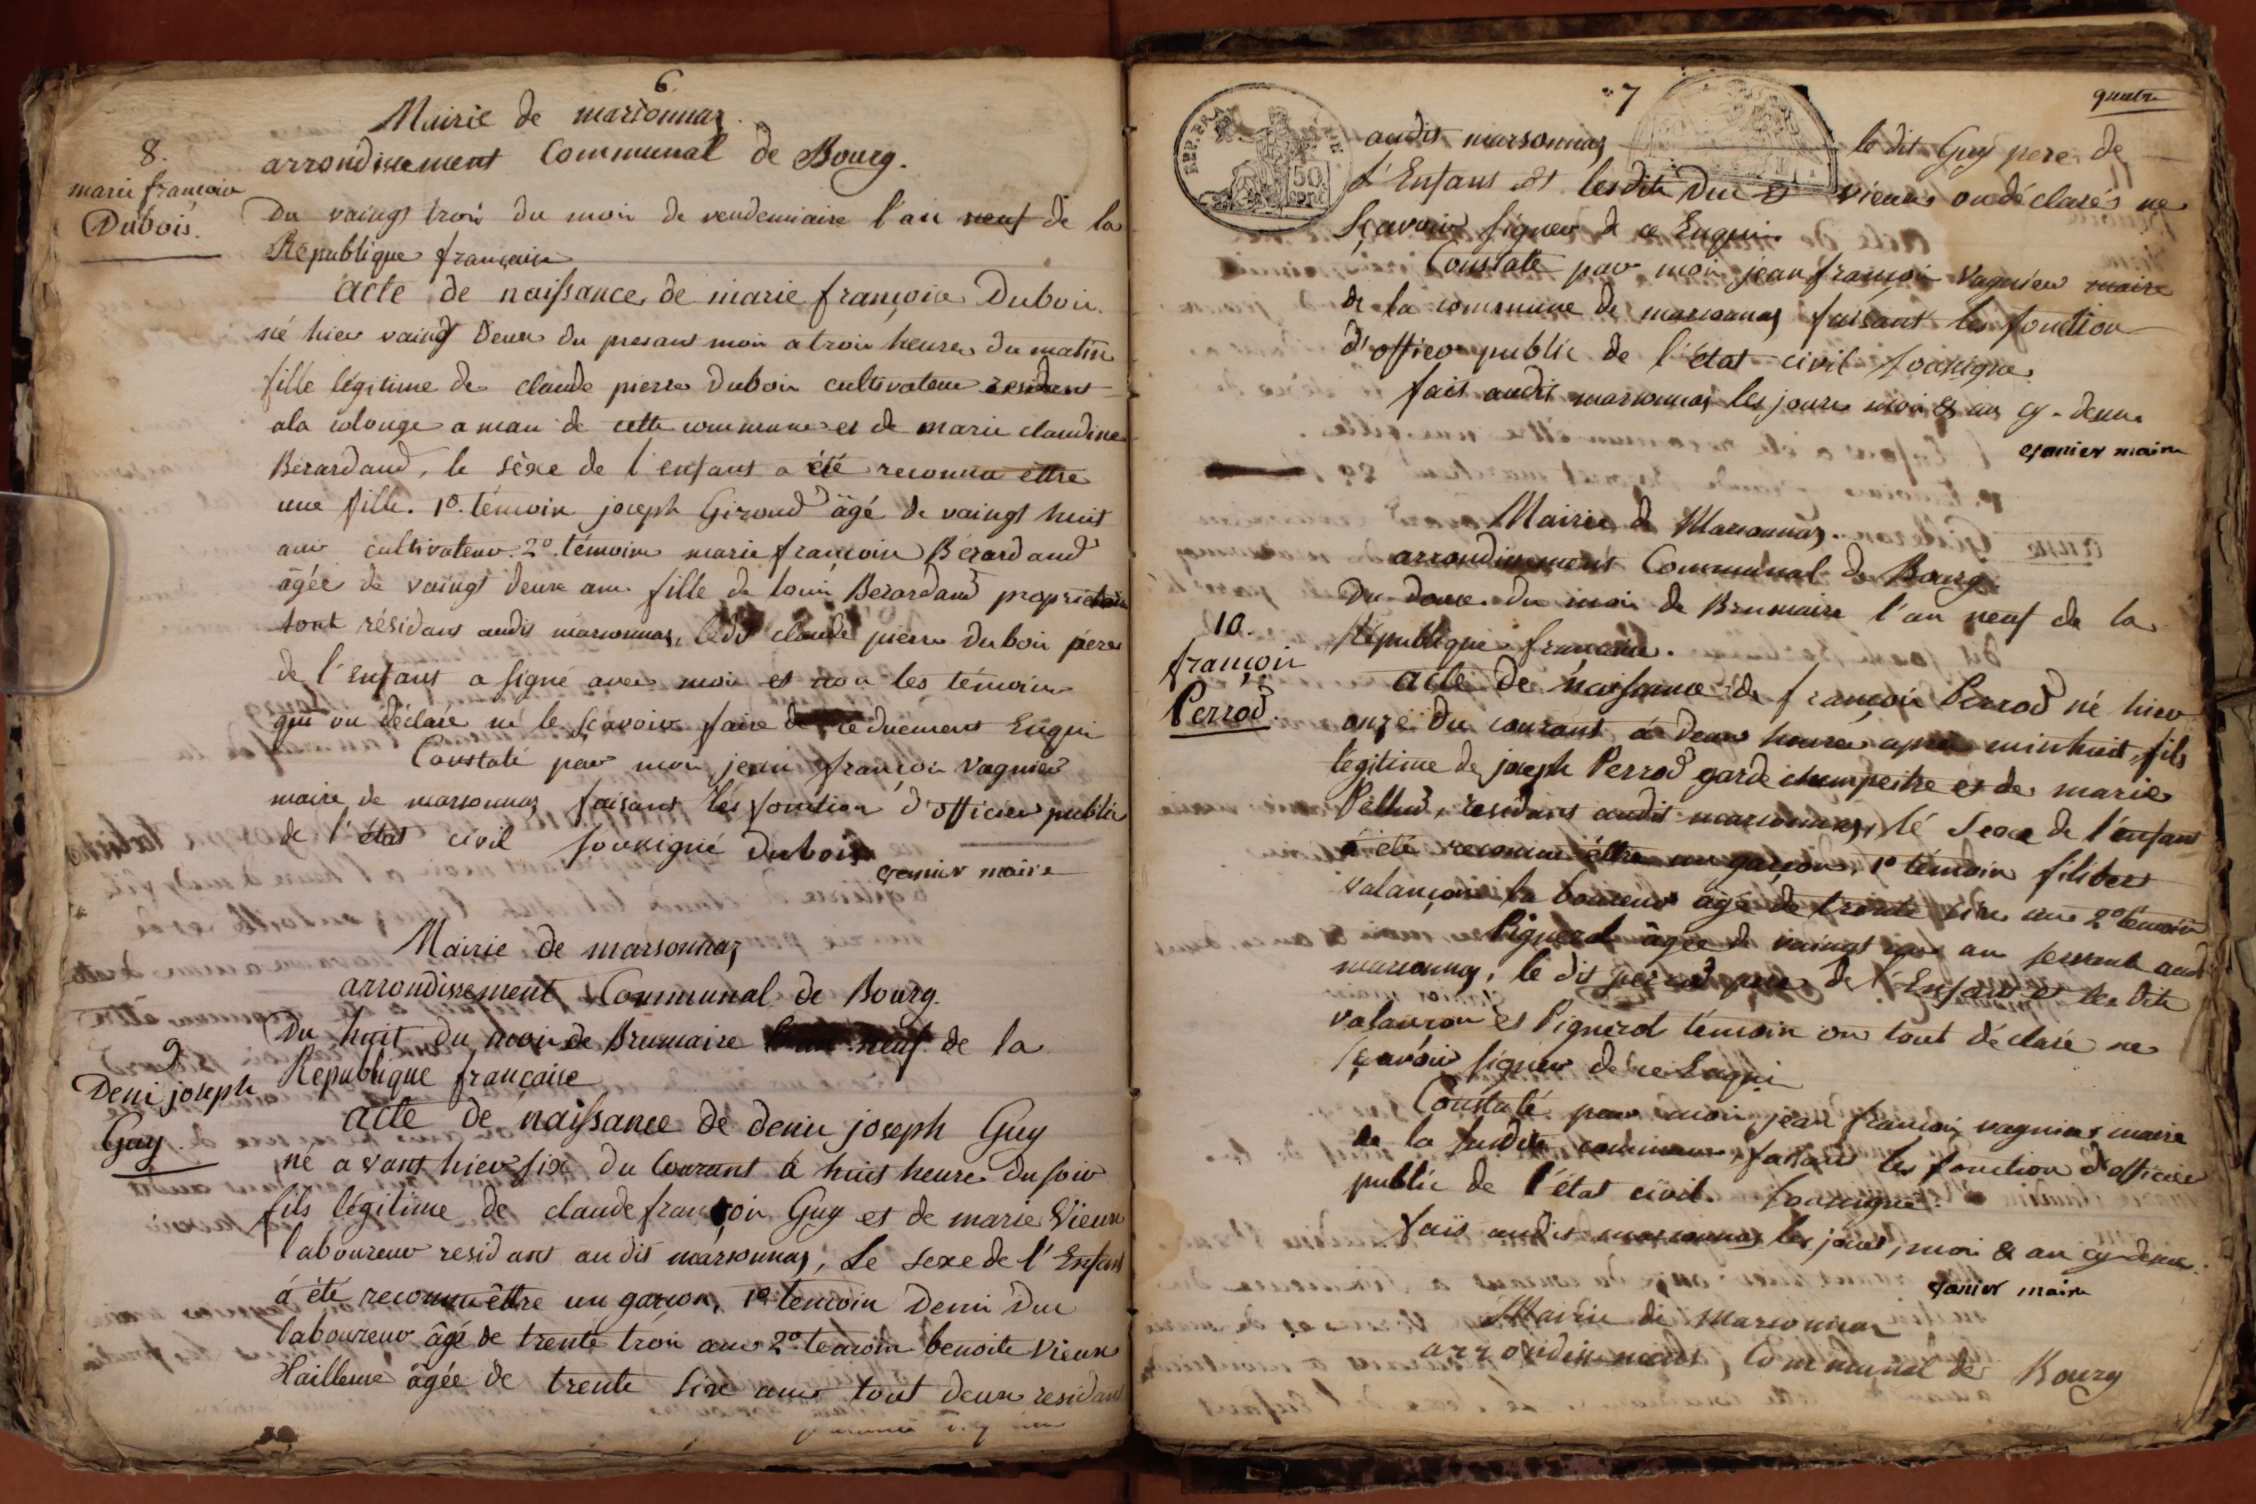 6
Mairie de marsonnaz
arrondissement Communal de Bourg.
8.
marie françoise
Dubois.
Du vaingt trois du mois de vendemiaire l'an neuf de la
République française
acte de naissance de marie françoise Dubois
né hier vaingt deux du presant mois a trois heures du matin
fille légitime de claude pierre Dubois cultivateur residant
ala colonge a mau de cette commune et de marie claudine
Bérardand, le sèxe de l'enfant a été reconnu ettre
une fille. 1º. témoin joseph Giroud âgé de vaingt huit
ans cultivateur. 2º. témoin marie françoise Bérardand
âgée de vaingt deux ans fille de louis Bérardand proprietaire
tout résidans audit marsonnaz, ledit claude pierre Dubois pere
de l'Enfant a signé avec moi et non les témoins
qui on déclaré ne le sçavoir faire de ce duement Enqui
Constaté par moi jean françois vagnier
maire de marsonnaz faisant les fonction d'officier public
de l'état civil soussigné Dubois
maire
Mairie de marsonnaz
arrondissement Communal de Bourg.
9
Deni joseph
Guy
Du huit du mois de Brumaire l'an neuf de la
République française
acte de naissance de denis joseph Guy
né avant hier six du Courant à huit heure du soir
fils légitime de claude françois Guy et de marie Vieux
laboureur residant audit marsonnaz, Le sexe de l'Enfant
á été reconnu être un garçon, 1º temoin Deni Duc
laboureur âgé de trente trois ans 2º temoin benoite Vieux
âgée de trente six ans tout deux residant
7
quatre
REP. FRA
50
audit marsonnaz le dit Guy pere de
l'Enfant et lesdits Duc & Vieux on déclarés ne
Sçavoir signer de ce Enquis
Constaté par moi jean françois Vagnier maire
de la commune de marsonnaz faisant les fonction
d'officer public de l'état civil soussigné
fait audit marsonnaz les jours mois & an cy-dessus
maire
Mairie de Marsonnaz.
arrondissement Communal de Bourg.
10.
françois
Perrod.
Du douze du mois de Brumaire l'an neuf de la
République française.
acte de naissance de françois Perrod né hier
onze du courant á deux heures après minhuit, fils
légitime de joseph Perrod garde champestre et de marie
residans audit marsonnaz, lé Sexe de l'enfant
à été reconnu être un garçon, 1º témoin filibert
valançon laboureur âgé de trente six ans 2º témoin
Pignerol âgée de vaingt six ans servante audit
marsonnaz, le dit perrod pere de l'Enfant et les dits
valançon et Pignerol témoin on tout déclaré ne
sçavoir signer de ce Enqui
Constaté par moi jean françois vagnier maire
de la susdite commune, faisant les fonction d'officier
public de l'état civil soussigné.
fait audit marsonnaz les jours, moi & an cy-dessus.
maire
Mairie de Marsonnaz
arrondissement Communal de Bourg